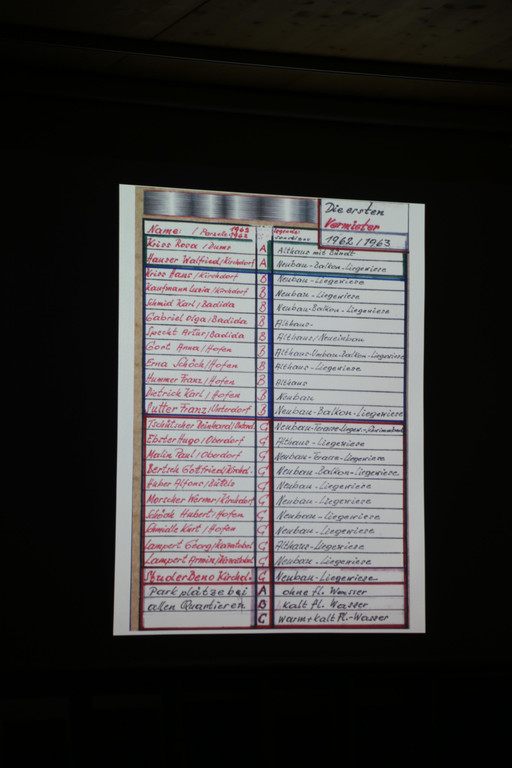 Die ersten
Vermieter
1962/1963
Name: / Parzelle 1962 1963
Kriss Rosa / Dums A Althaus mit Bündt
Hauser Walfried/Kirchdorf A Neubau-Balkon-Liegewiese
Kriss Hans/Kirchdorf B Neubau-Liegewiese
Kaufmann Luzia/Kirchdorf B Neubau-Liegewiese
Schmid Karl/Badida B Neubau-Balkon-Liegewiese
Gabriel Olga/Badida B Althaus-
Specht Artur/Badida B Althaus/
Gort Anna/Hofen B Althaus-Umbau-Balkon-Liegewiese
Erna Schöch/Hofen B Althaus-Liegewiese
Hummer Franz/Hofen B Althaus
Dietrich Karl/Hofen B Neubau
Dutter Franz/Unterdorf B Neubau-Balkon-Liegewiese
Tschütscher C Neubau-Terasse-Liegew.-
Ebster Hugo/Oberdorf C Althaus-Liegewiese
Malin Paul/Oberdorf C Neubau-Terasse-Liegewiese
Bertsch Gottfried/Kirchd. C Neubau-Balkon-Liegewiese
Huber Alfons/Bützle C Neubau-Liegewiese
Merscher Werner/Kirchdorf C Neubau-Liegewiese
Schöch Hubert/Hofen C Neubau-Liegewiese
Schmidle Kurt/Hofen C Neubau-Liegewiese
Lampert Georg/ C Althaus-Liegewiese
Lampert Armin/ C Neubau-Liegewiese
Studer Beno Kirchd. C Neubau-Liegewiese
Parkplätze bei A ohne fl. Wasser
allen Quartieren B Kalt fl. Wasser
C Warm+kalt Fl.-Wasser